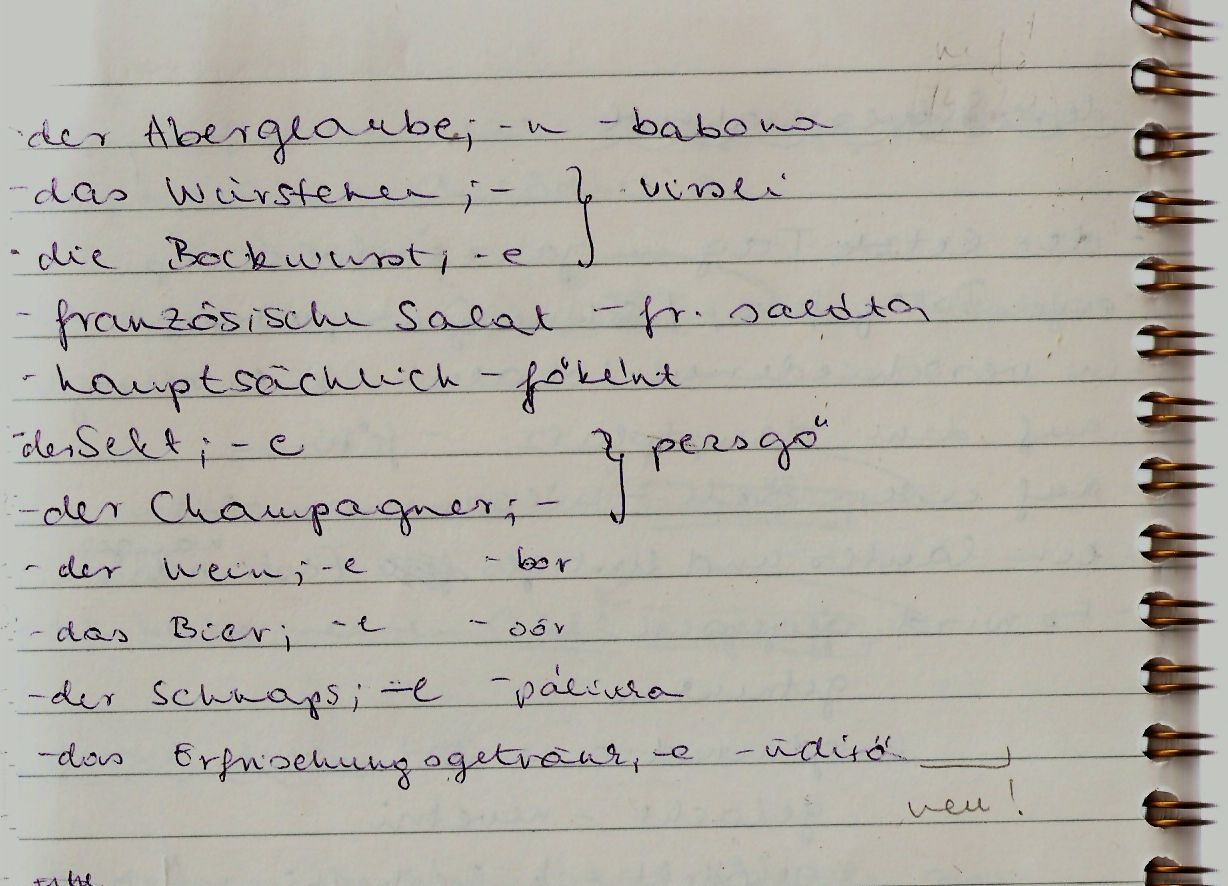 der Aberglaube; -n - babona
- das Würstchen; - } virsli
- die Bockwurst; -e
- französische Salat - fr. saláta
- hauptsächlich - főként
- der Sekt; -e } pezsgő
- der Champagner; -
- der Wein; -e - bor
- das Bier; -e - sör
- der Schnaps; -e - pálinka
- das Erfrischungsgetränk, -e - üdítő
neu!